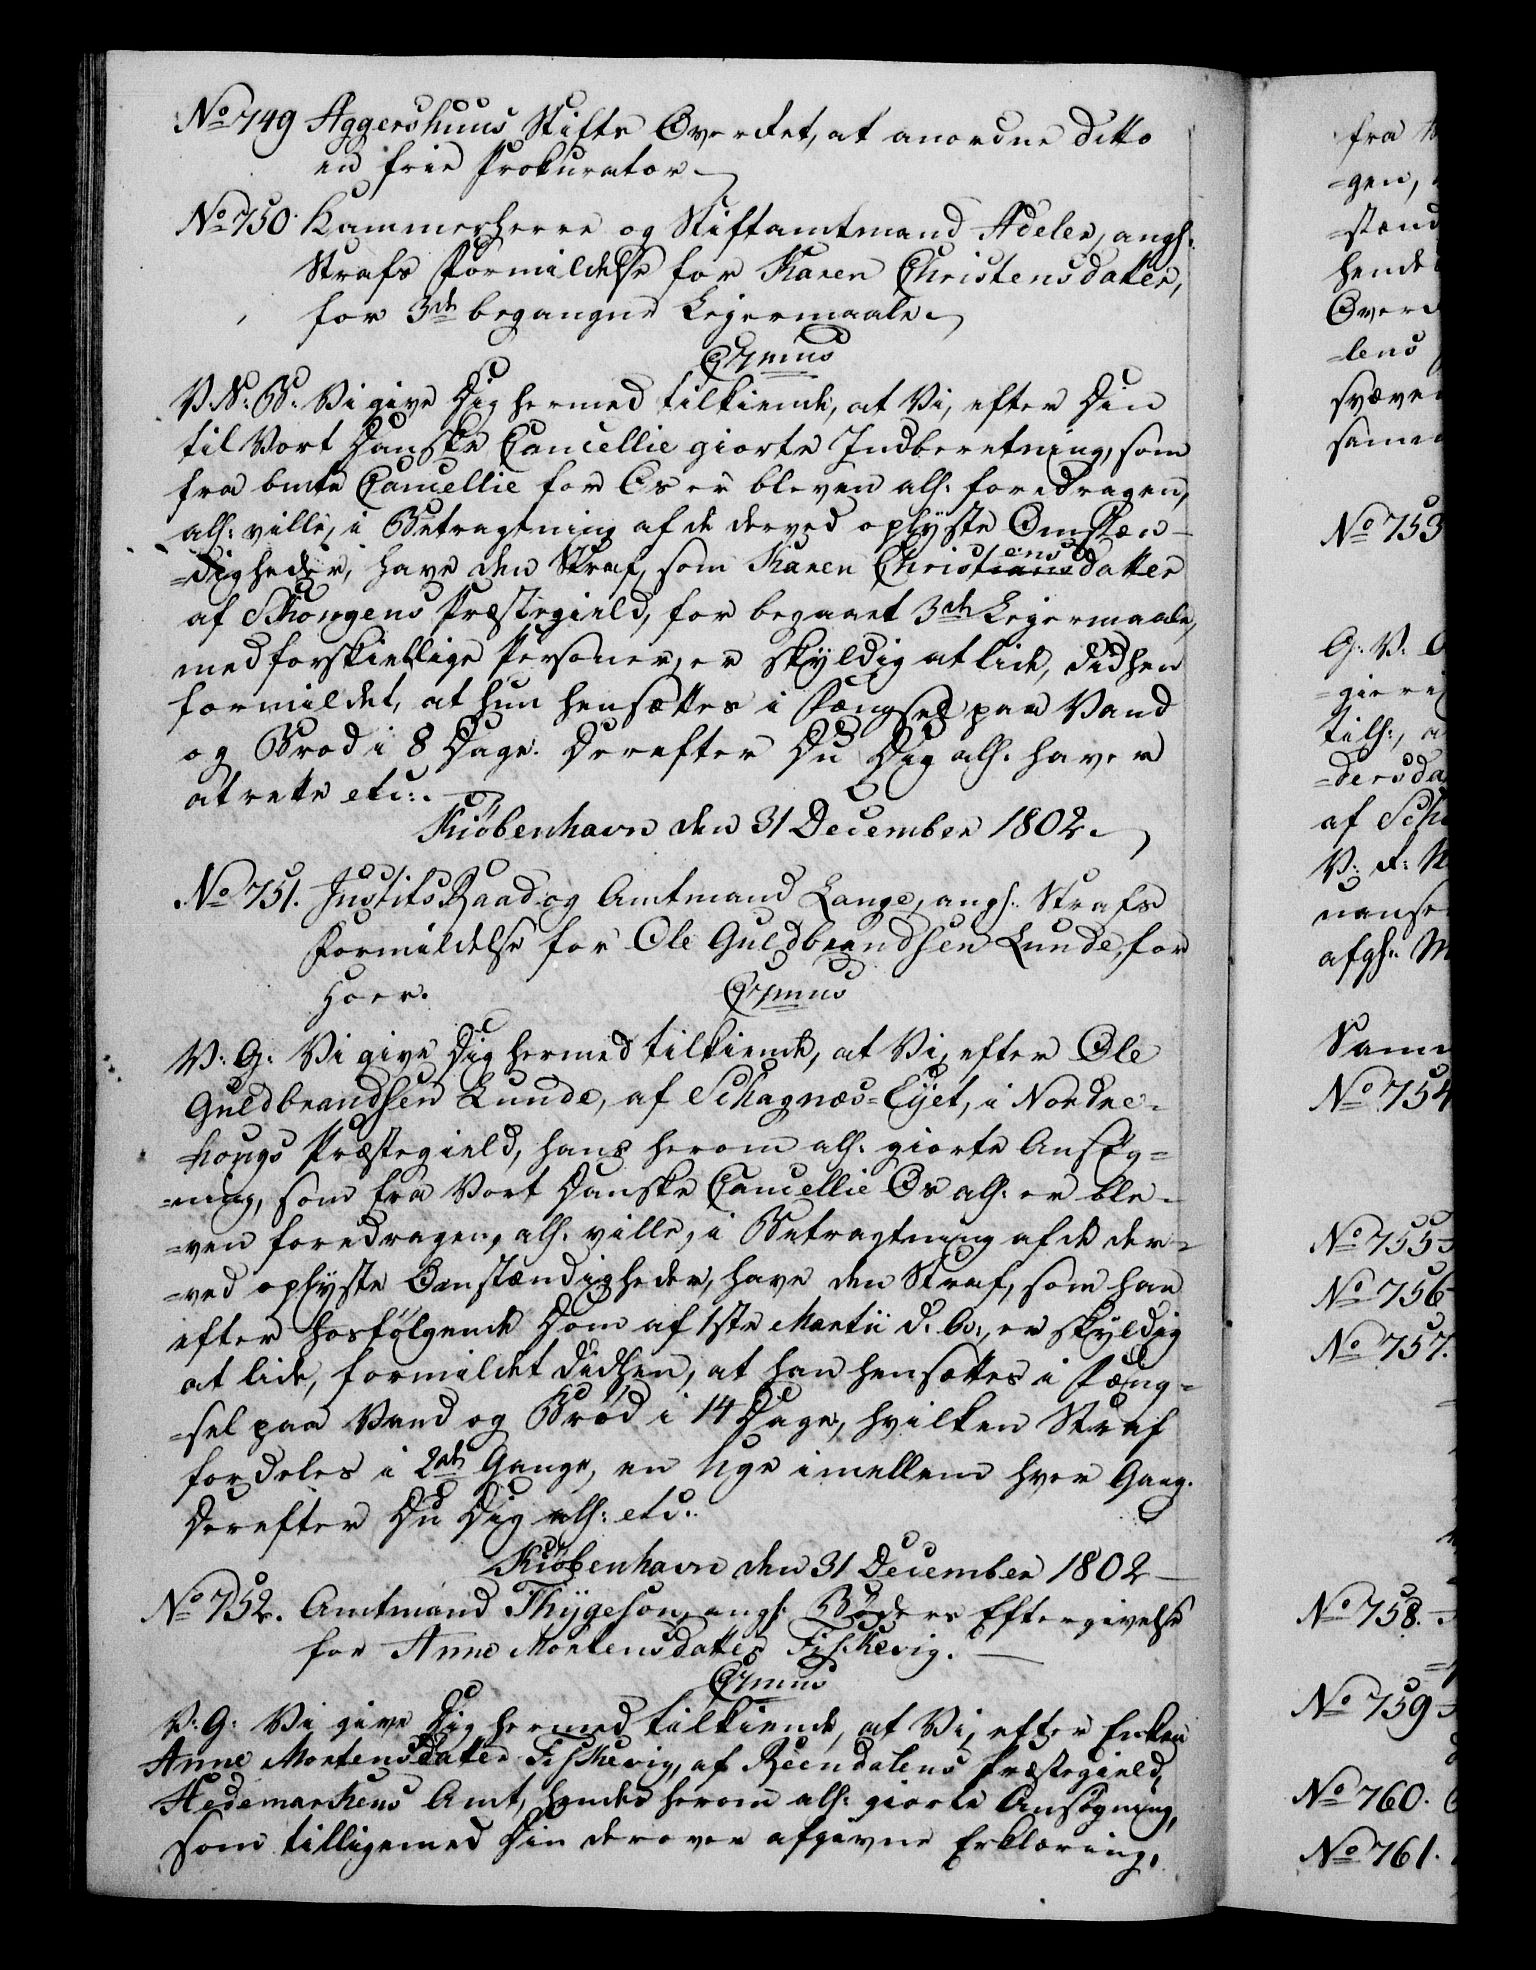 No 749 Aggershuus Stifts Øvrighed, at anordne ditto
en frie Prokurator.
No 750. Kammerherre og Stiftamtmand Adeler, angl:
Strafs Formildelse for Karen Christensdatter,
for 3de begangne Lejermaale.
C7mus
V. S: B: Vi give Dig hermed tilkiende, at Vi, efter Din
til Vort Danske Cancellie giorte Indberetning, som
fra bmte Cancellie for Os er bleven all: foredragen,
all: ville, i Betragtning af de derved oplyste Omstæn-
=digheder, have den Straf, som Karen Christensdatter
af Schougens Præstegield, for begaaet 3de Lejermaale,
med forskiellige Personer, er skyldig at lide, didhen
formildet, at hun hensættes i Fængsel paa Vand
og Brød i 8 Dage. Derefter Du Dig all: haver
at rette etc:.
Kiöbenhavn den 31 December 1802.
No 751. JustitsRaad og Amtmand Lange, angl: Strafs
Formildelse for Ole Guldbrandsen Lunde, for
Hoer.
C7mus
V: G: Vi give Dig hermed tilkiende, at Vi, efter Ole
Guldbrandsen Lunde, af Schagnæs=Eyet, i Nordre-
=hougs Præstegield, hans herom all: giorte Ansøg=
=ning, som fra Vort Danske Cancellie Os all: er ble-
=ven foredragen, all: ville, i Betragtning af de der=
=ved oplyste Omstændigheder, have den Straf, som han
efter hosfölgende Dom af 1ste Martii d: A:, er skyldig
at lide, formildet didhen, at han hensættes i Fæng=
=sel paa Vand og Brød i 14 Dage, hvilken Straf
fordeles i 2de Gange, en Uge imellem hver Gang.
Derefter Du Dig all: etc:
Kiöbenhavn den 31 December 1802
No 752. Amtmand Thygeson, angl: Bøders Eftergivelse
for Anne Mortensdatter Fiskevig.
C7mus
V: G: Vi give Dig hermed tilkiende, at Vi, efter Enken
Anne Mortensdatter Fiskevig, af Reendalens Præstegield,
Hedemarkens Amt, hendes herom all: giorte Ansøgning,
som tilligemed Din derover afgivne Erklæring,
fra
=gen,
=stænd
hende
Over
=lens
svæve
samme
No 753
G: V:
=gieri
tilh:, a
=dersda
af Sch
V: d: M
nanse
afgh: M
Samm
No 754
No 755
No 756
No 757.
No 758.
No 759
No 760.
No 761.